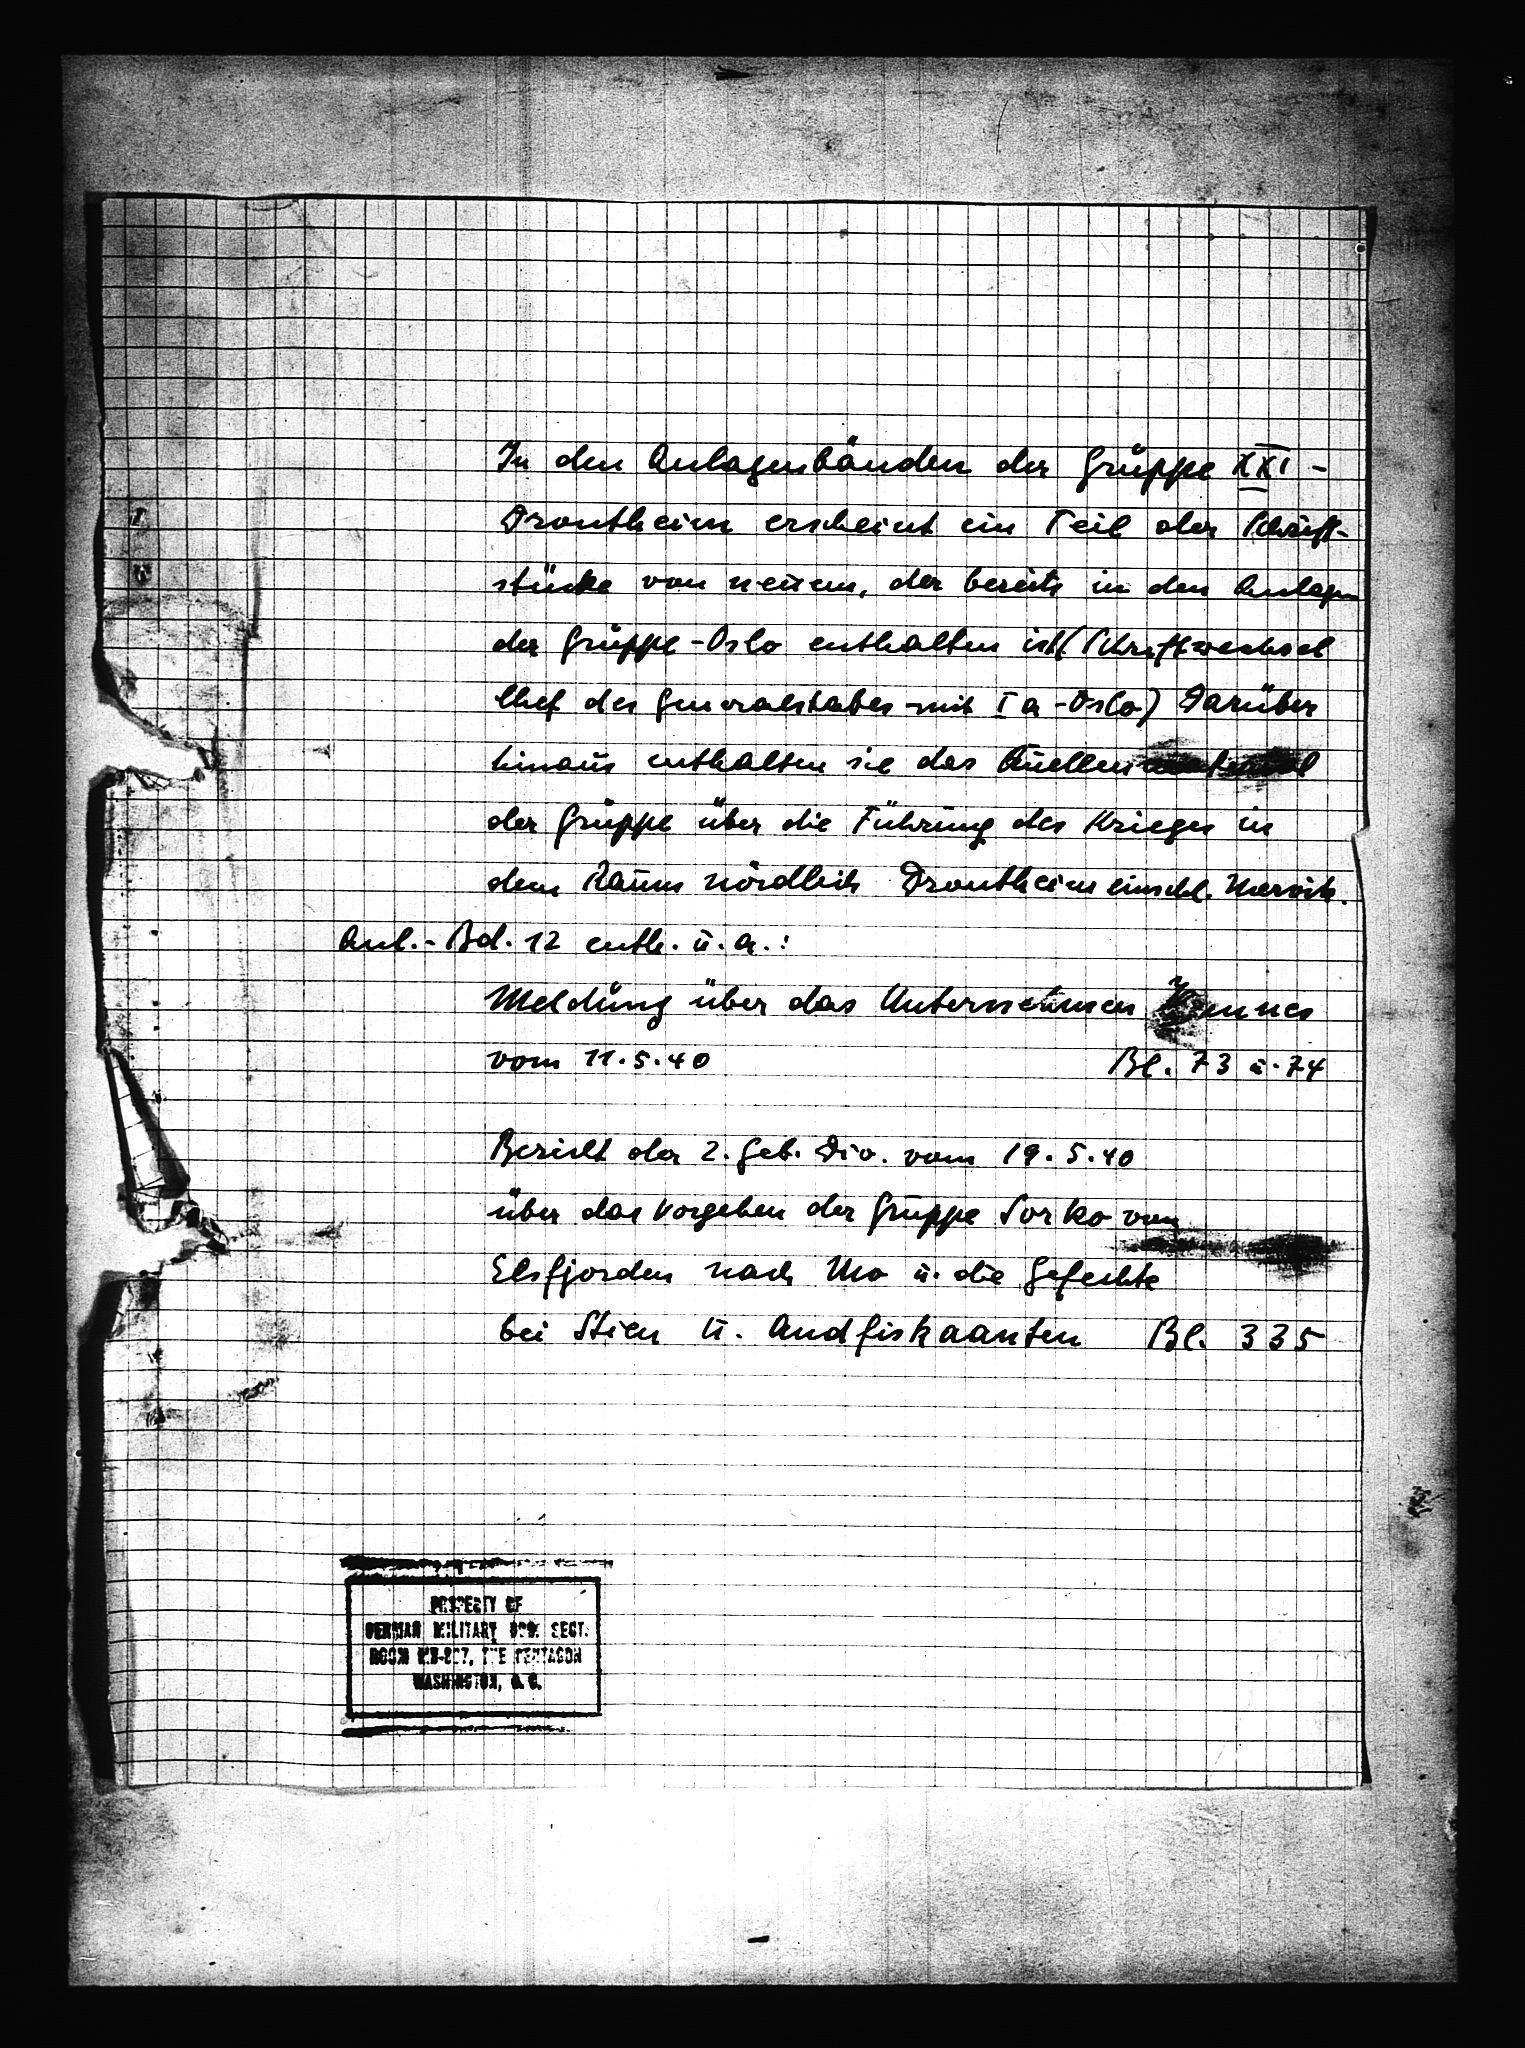 In den Anlagenbänden der Gruppe XXI -
Drontheim erscheint ein Teil der Schrift-
stücke von neuem, der bereits in den Anlagen
der Gruppe-Oslo enthalten ist (Schriftwechsel
Chef des Generalstabes mit Ia-Oslo) Darüber
hinaus enthalten sie das Quellenmaterial
der Gruppe über die Führung des Krieges in
dem Raum nördlich Drontheim einschl. Narvik.
Anl.-Bd. 12 enth. u. a.:
Meldung über das Unternehmen
vom 11.5.40 Bl. 73 u. 74
Bericht der 2. Geb. Div. vom 19.5.40
über das Vorgehen der Gruppe Sorko von
Elsfjorden nach Mo u. die Gefechte
bei Stien u. Andfiskaanten Bl. 335
PROPERTY OF
GERMAN MILITARY DOC. SECT.
ROOM THE PENTAGON
WASHINGTON, D. C.